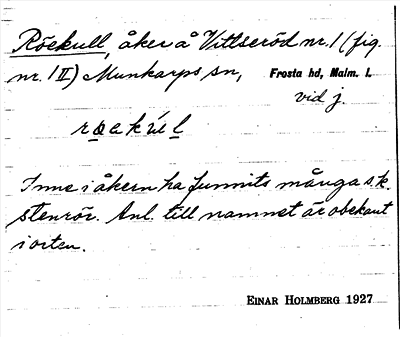 Röekull, åker å Vittseröd nr. 1 (fig.
nr. 1 II) Munkarps sn, Frosta hd, Malm. l.
vid j.
røakúl
Inne i åkern ha funnits många s.k.
stenrör. Anl. till namnet är obekant
i orten.
EINAR HOLMBERG 1927